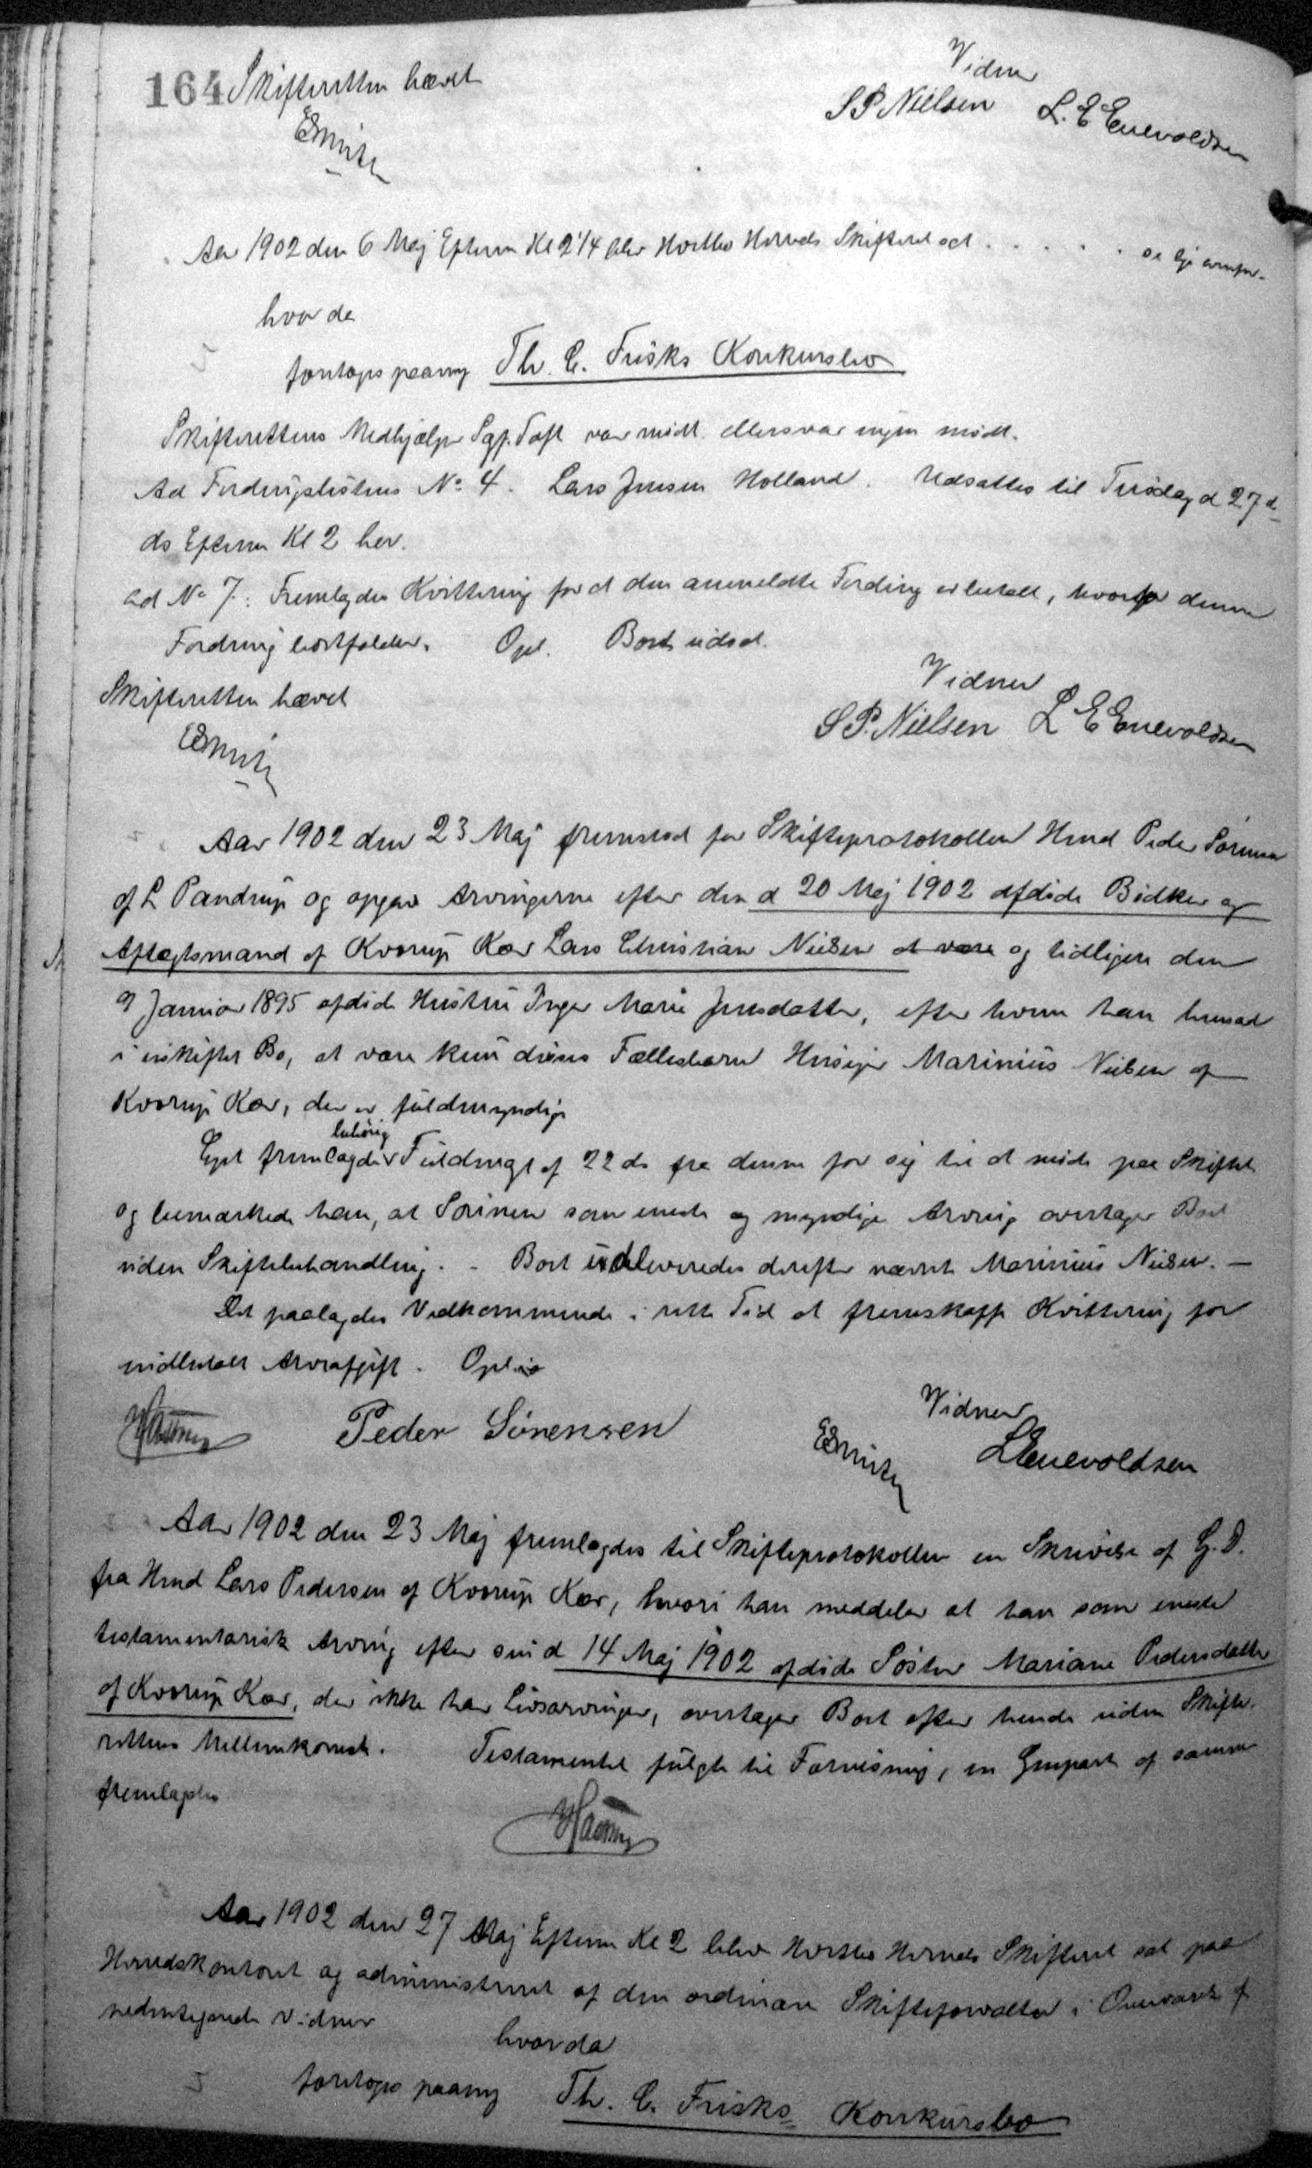 164 Skifteretten hævet
Vidner
S P Nielsen L. E Enevoldsen
Aar 1902 den 6 Maj Efterm Kl 2 1/4 blev Hvetbo Herreds Skifteret sat . . . . . .
hvor da
foretoges paany Th. C. Frisks Konkursbo
Skifterettens Medhjælper Sgf. Toft var mødt. Ellers var ingen mødt.
Ad Fordringslistens No 4. Lars Jensen Holland. Udsattes til Tirsdag d 27 d
ds Efterm Kl 2 her.
ad No 7: Fremlagdes Kvittering for at den anmeldte Fordring er betalt, hvorfor denne
Fordring bortfalder. Opl. Boet udsat.
Skifteretten hævet
Vidner
S P. Nielsen L E Enevoldsen
Aar 1902 den 23 Maj fremstod for Skifteprotokollen Hmd Peder Sørensen
af L Pandrup og opgav Arvingerne efter den d 20 Maj 1902 afdøde Bødker og
Aftægtsmand af Kvorup Kær Lars Christian Nielsen at være og tidligere den
9 Januar 1895 afdøde Hustru Inger Marie Jensdatter, efter hvem han hensad
i uskiftet Bo, at være kun deres Fællesbarn Husejer Marinius Nielsen af
Kvorup Kær, der er fuldmyndig
Cpt fremlagde behørig Fuldmagt af 22 ds fra denne for sig til at møde paa Skiftet
og bemærkede han, at Sønnen som eneste og myndige Arving overtager Boet
uden Skiftebehandling. - Boet udleveredes derefter nævnte Marinius Nielsen. -
Det paalagdes Vedkommende i rette Tid at fremskaffe Kvittering for
indbetalt Arveafgift. Oplæst
Peder Sørensen
Vidner
LEnevoldsen
Aar 1902 den 23 Maj fremlagdes til Skifteprotokollen en Skrivelse af G. D.
fra Hmd Lars Pedersen af Kvorup Kær, hvori han meddeler at han som eneste
testamentarisk Arving efter sin d 14 Maj 1902 afdøde Søster Mariane Pedersdatter
af Kvorup Kær, der ikke har Livsarvinger, overtager Boet efter hende uden Skifte-
rettens Mellemkomst. Testamentet fulgte til Forevisning, en Genpart af samme
fremlagdes
Aar 1902 den 27 Maj Efterm Kl 2 blev Hvetbo Herreds Skifteret sat paa
Herredskontoret og administreret af den ordinære Skifteforvalter i Overværelse af
nedentegnede Vidner
hvor da
foretoges paany Th. C. Frisks Konkursbo